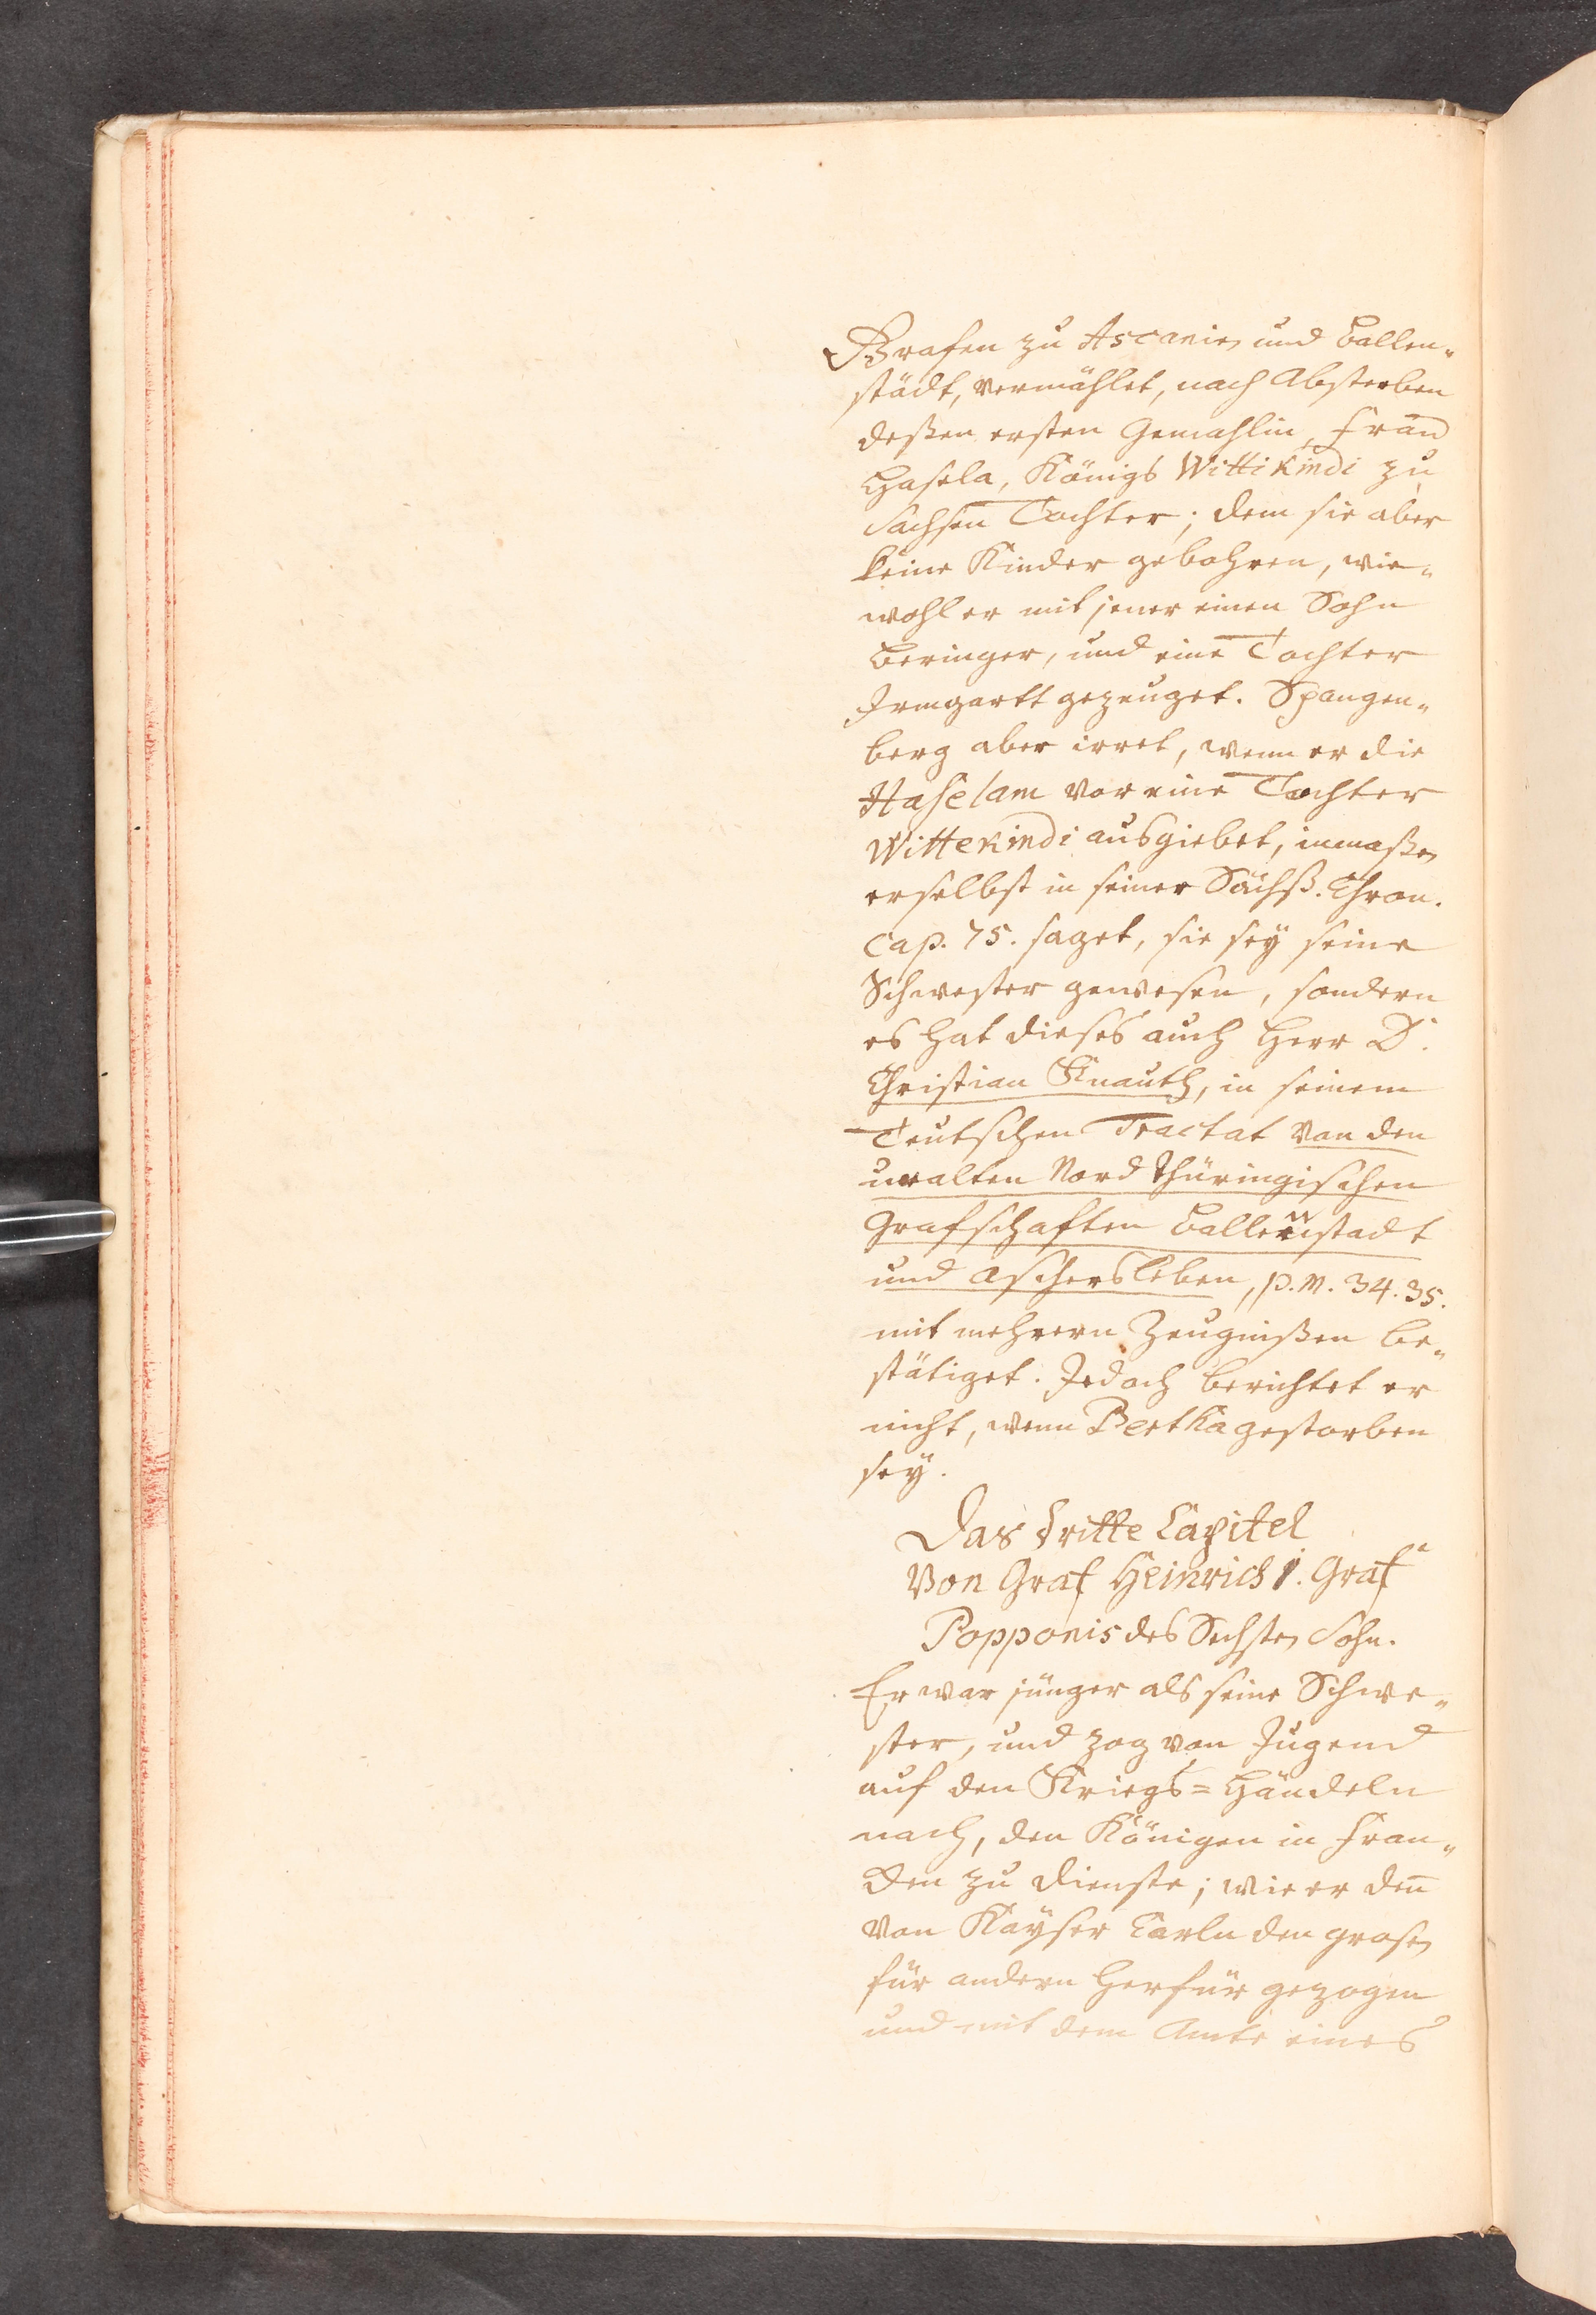 Grafen zu Ascanien und Ballen-
städt, vermählet, nach Absterben
deßen ersten Gemahlin, Frau
Hasela, Königs Wittikindi zu
Sachsen Tochter; dem sie aber
keine Kinder gebohren, wie-
wohl er mit jener einen Sohn
Beringer, und eine Tochter
Irmgartt gezeuget. Spangen-
berg aber irret, wenn er die
Haselam vor eine Tochter
Wittekindi ausgiebet, inmaßen
er selbst in seiner Sächß. Chron.
Cap. 75. saget, sie sey seine
Schwester gewesen, sondern
es hat dieses auch Herr D.
Christian Knauth, in seinem
Teutschen Tractat von den
uralten Nord Thüringischen
Grafschaften Ballenstadt
und Aschersleben, p. m. 34. 35.
mit mehrern Zeugnißen be-
stätiget. Jedoch berichtet er
nicht, wenn Bertha gestorben
sey.
Das dritte Capitel
Von Graf Heinrich I. Graf
Popponis des Sechsten Sohn.
Er war jünger als seine Schwe-
ster, und zog von Jugend
auf den Kriegs=Händeln
nach, den Königen in Fran-
cken zu Dienste; wie er deñ
von Kayser Carln den grosen
für andern herfür gezogen
und mit dem Amte eines